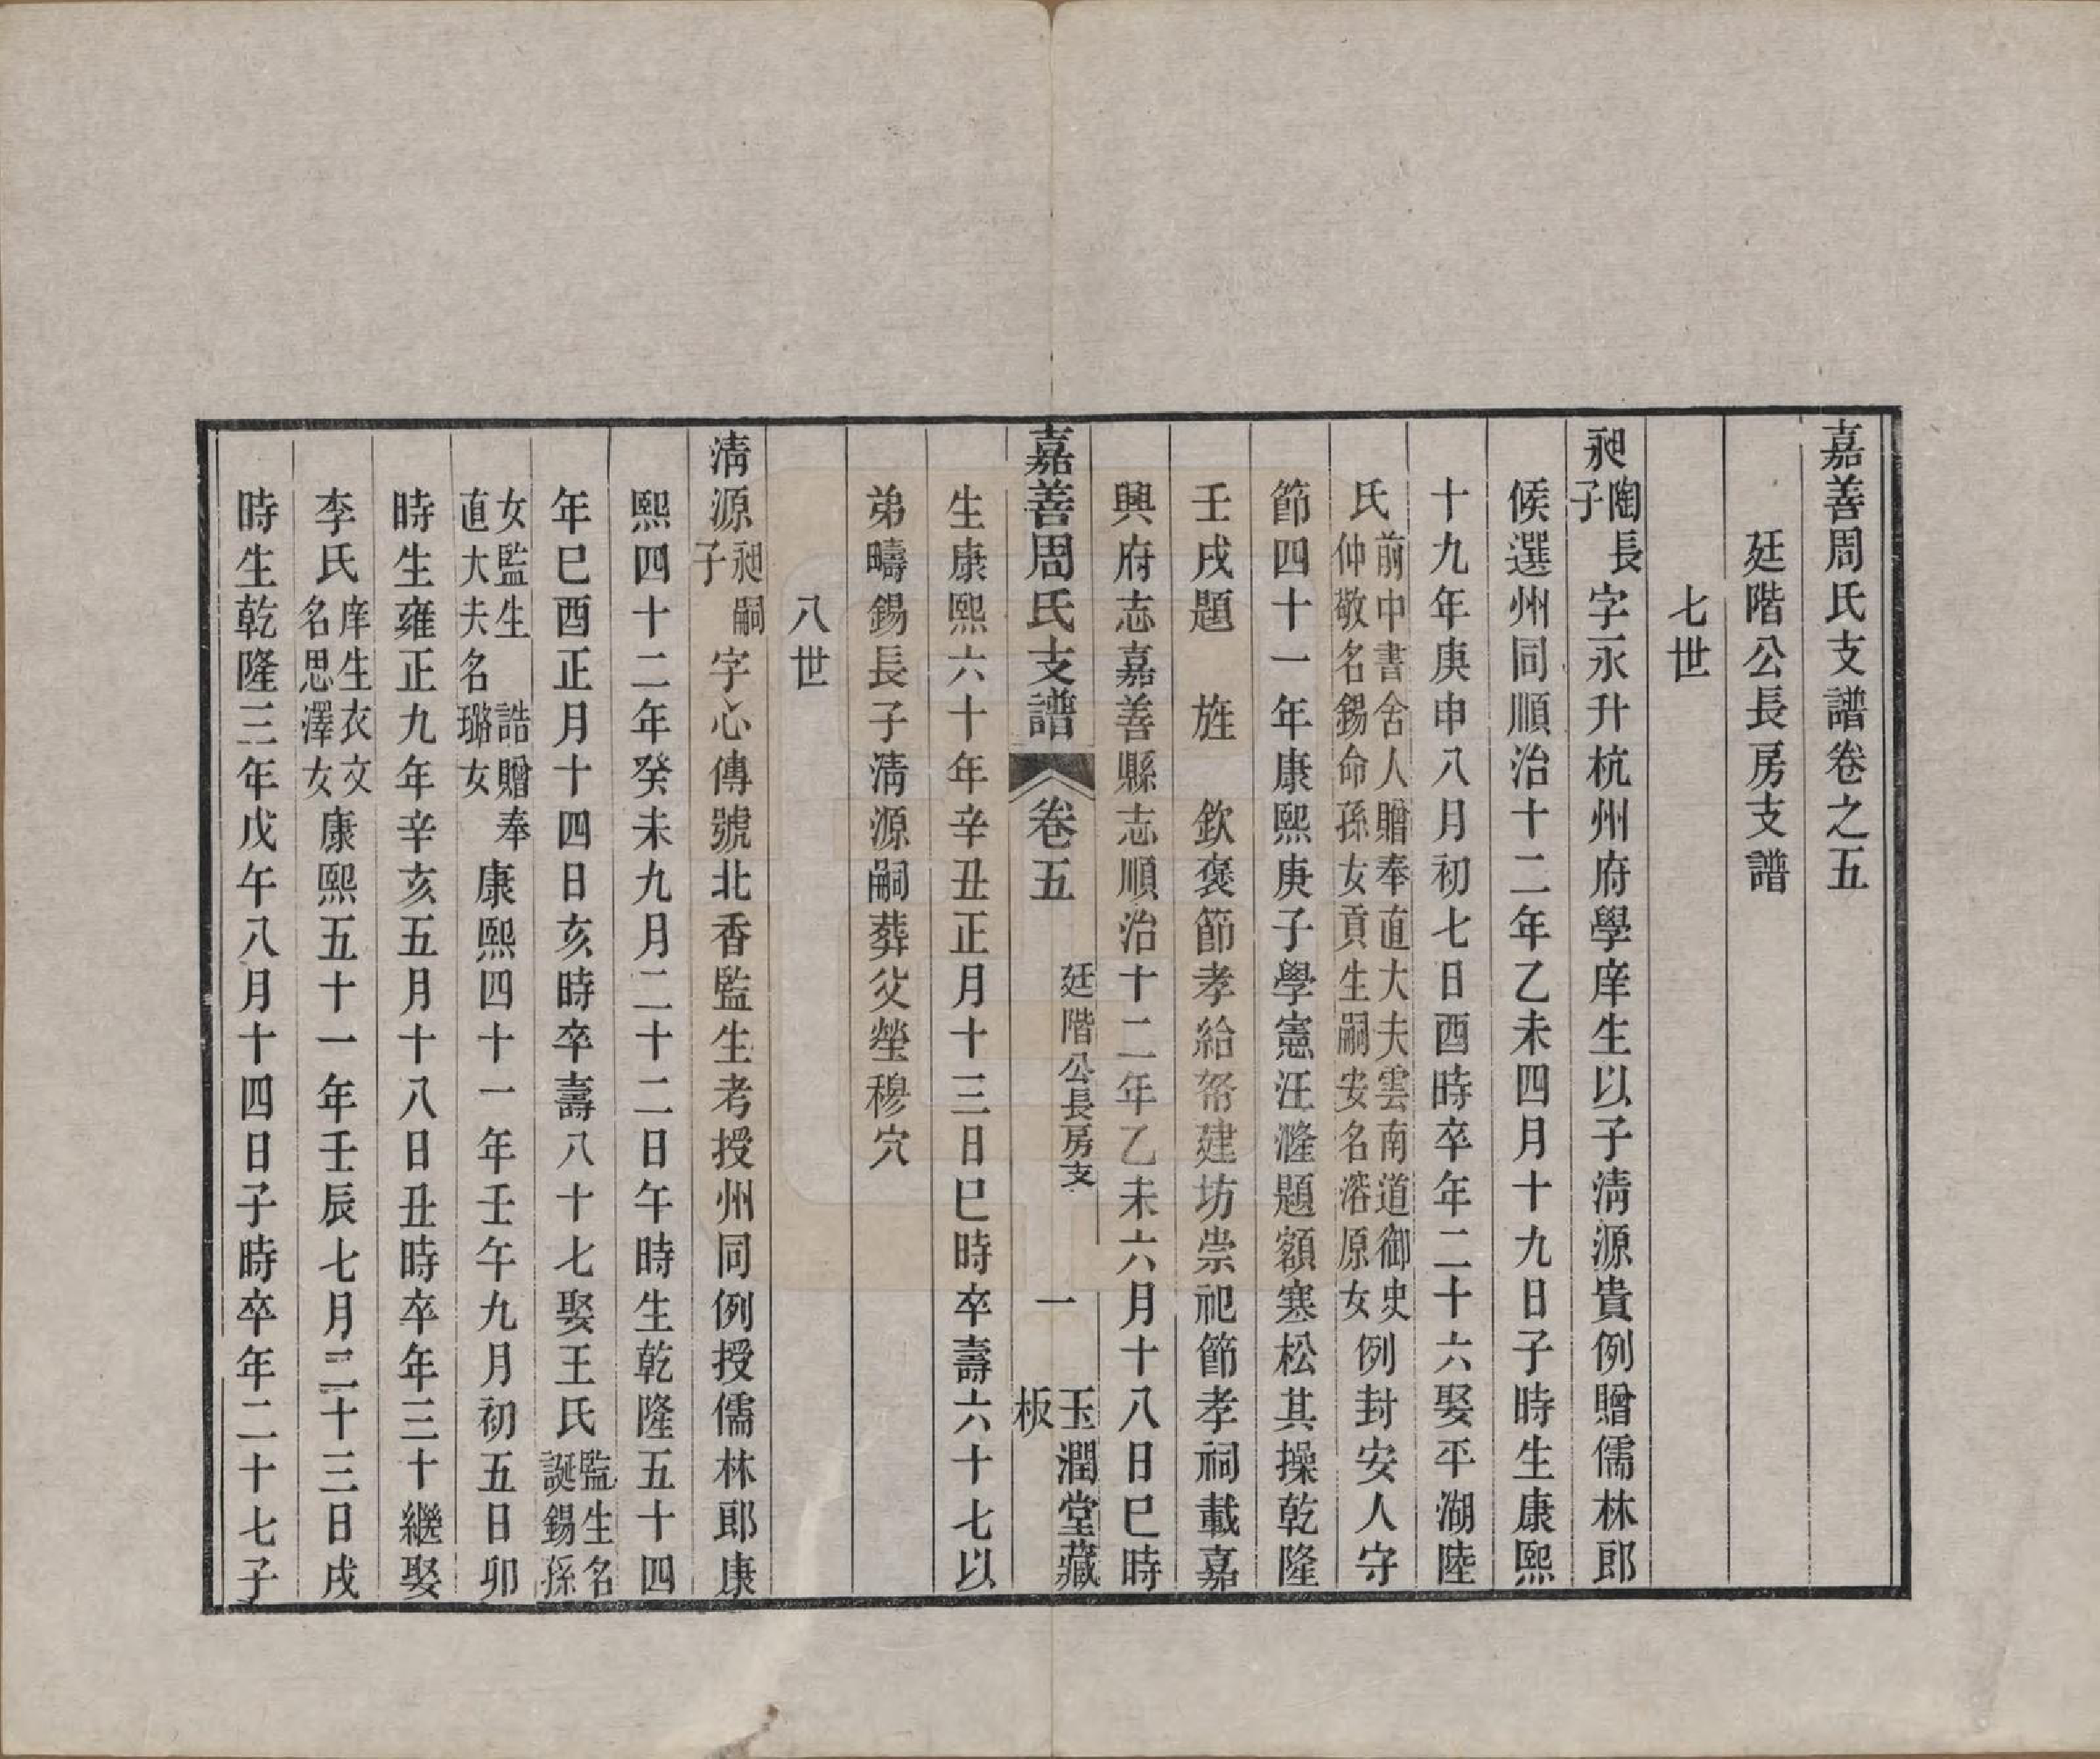 嘉善周氏支譜卷之五
廷階公長房支譜
七世
昶陶長子字永升杭州府學庠生以子清源貴例贈儒林郎
候選州同順治十二年乙未四月十九日子時生康熙
十九年庚申八月初七日酉時卒年二十六娶平湖陸
氏前中書舍人贈奉直大夫雲南道御史仲敬名錫命孫女貢生嗣安名濬原女例封安人守
節四十一年康熙庚子學憲汪漋題額寒松其操乾隆
壬戌題 旌 欽褒節孝給帑建坊崇祀節孝祠載嘉
興府志嘉善縣志順治十二年乙未六月十八日巳時
嘉善周氏支譜 卷五 廷階公長房支 一 玉潤堂藏板
生康熙六十年辛丑正月十三日巳時卒壽六十七以
弟疇錫長子清源嗣葬父塋穆穴
八世
清源昶嗣子字心傳號北香監生考授州同例授儒林郎康
熙四十二年癸未九月二十二日午時生乾隆五十四
年巳酉正月十四日亥時卒壽八十七娶王氏監生名誕錫孫
女監生 誥贈奉直大夫名璐女康熙四十一年壬午九月初五日卯
時生雍正九年辛亥五月十八日丑時卒年三十繼娶
李氏庠生衣文名思澤女康熙五十一年壬辰七月二十三日戌
時生乾隆三年戊午八月十四日子時卒年二十七子